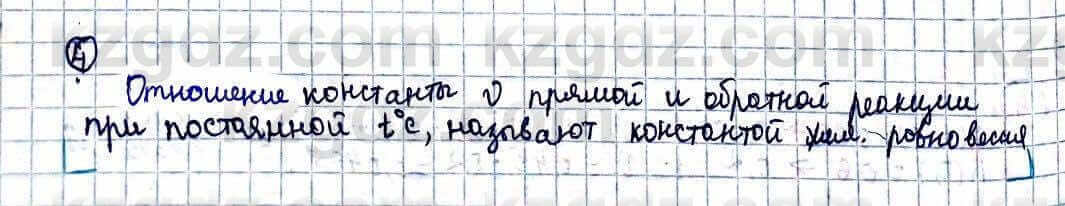 kzgdz.com kzgdz.com kzgdz.com
4
Отношение константы υ прямой и обратной реакции
при постаянной t°c, называют константой хим. ровновесия